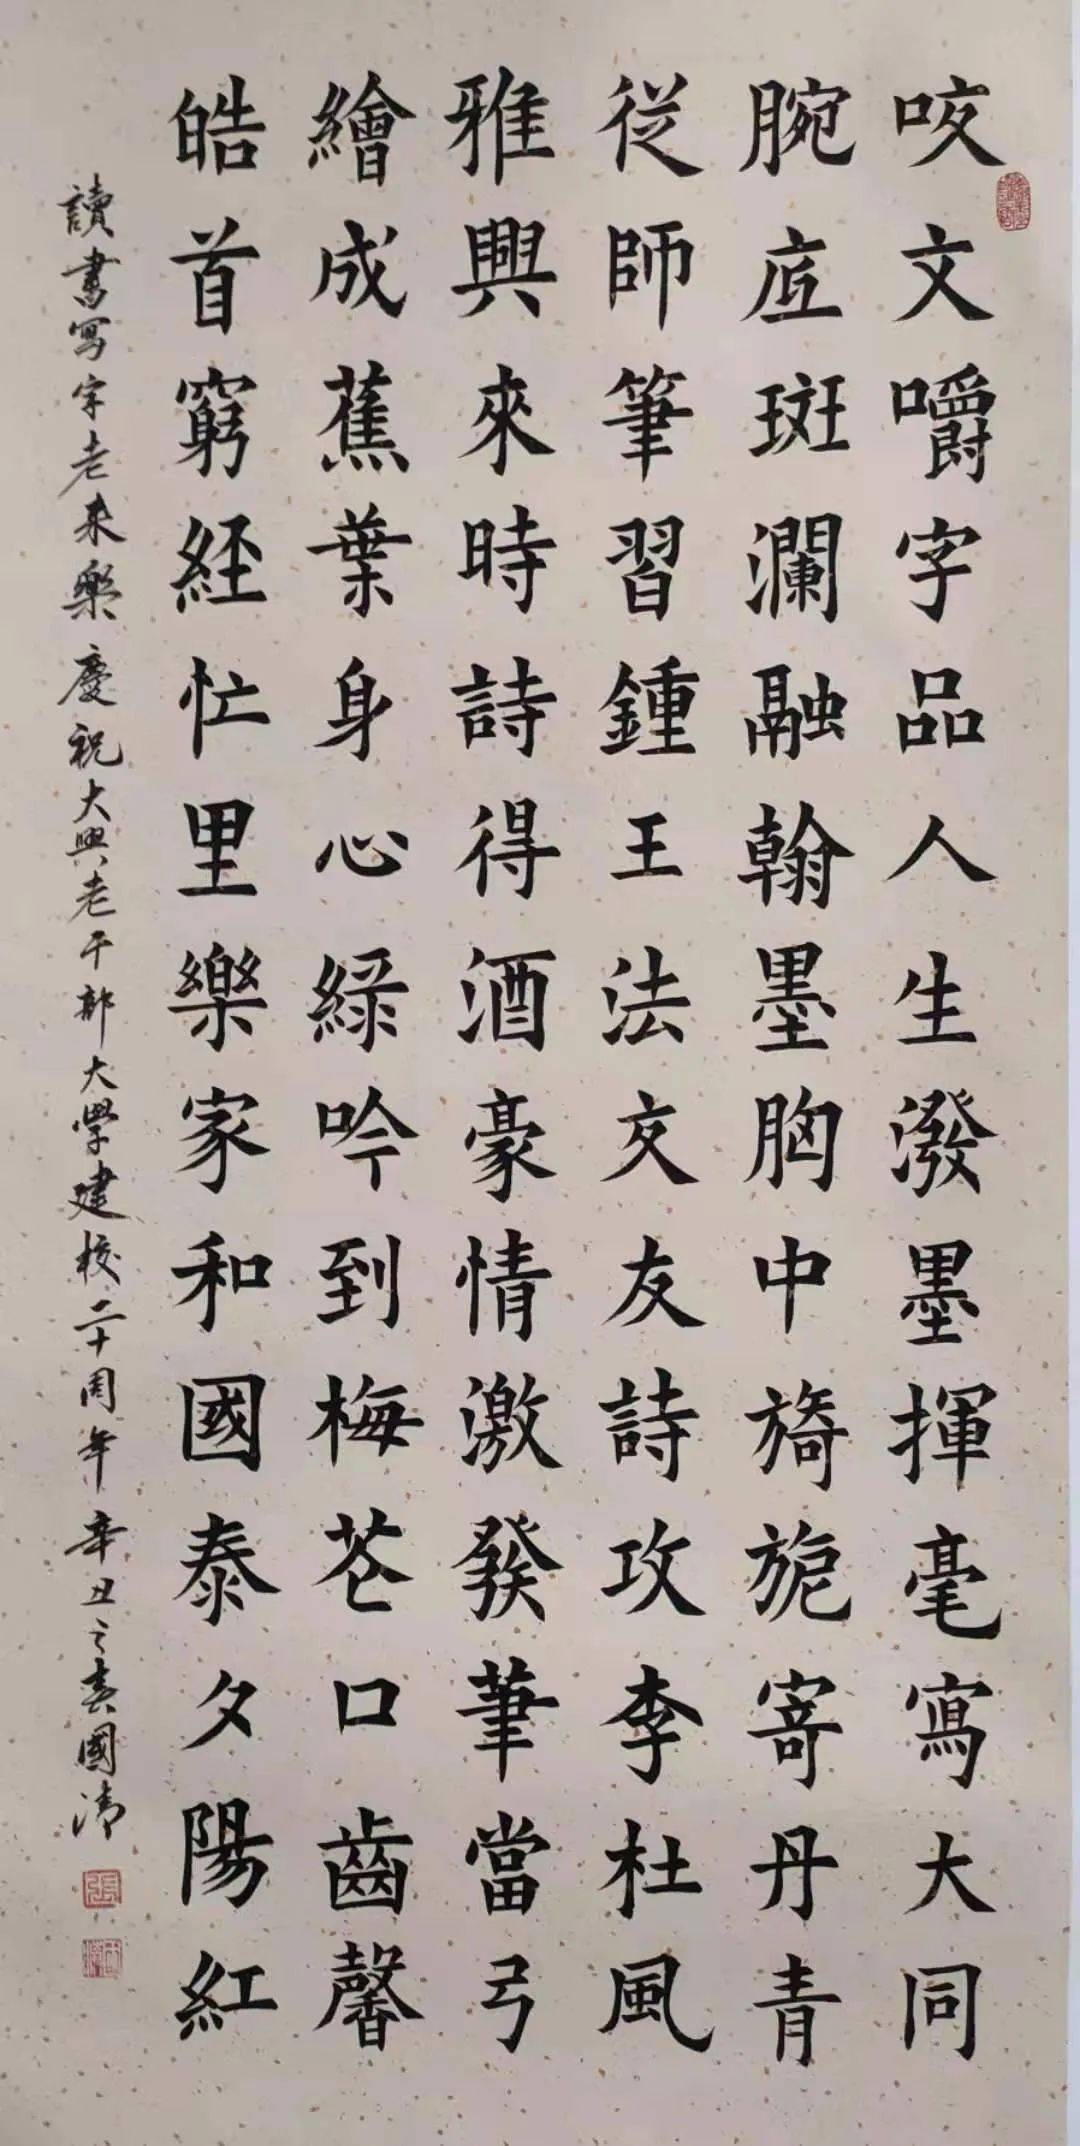 咬文嚼字品人生潑墨揮毫寫大同
腕底斑斕融翰墨胸中旖旎寄丹青
從師筆習鍾王法交友詩攻李杜風
雅興來時詩得酒豪情激發筆當弓
繪成蕉葉身心綠吟到梅花口齒馨
皓首窮經忙里樂家和國泰夕陽紅
讀書寫字老来樂慶祝大興老干部大學建校二十周年辛丑之春國清